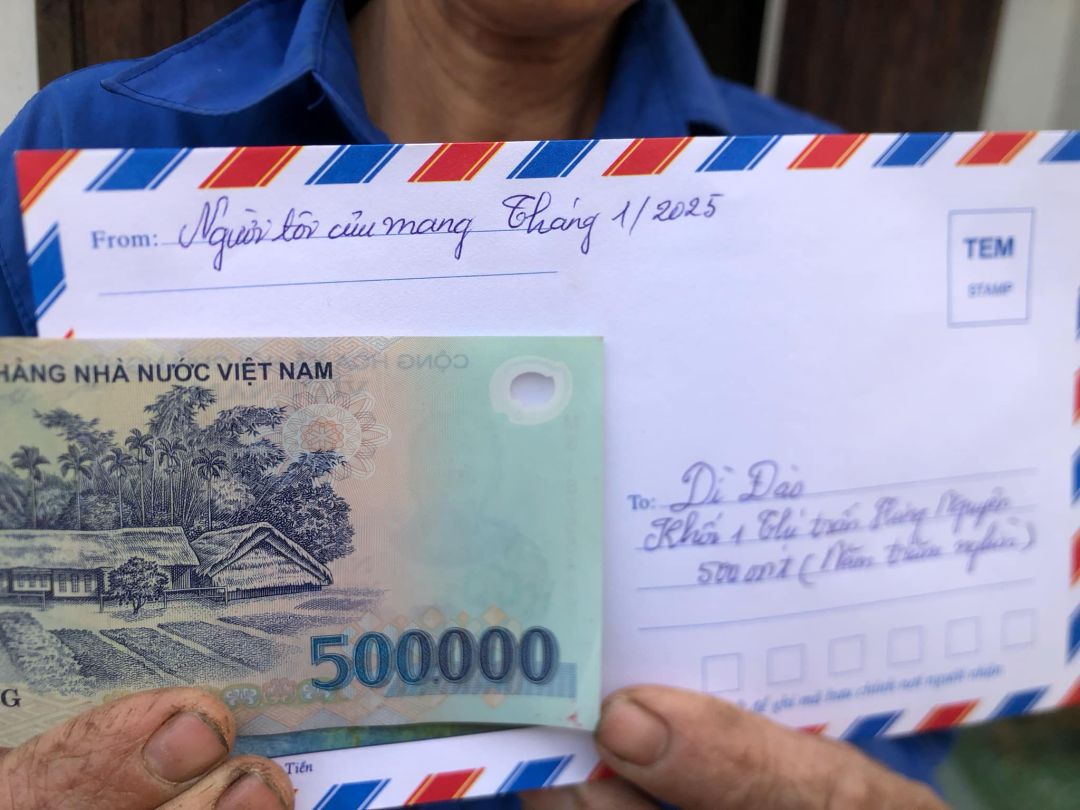 From: Người tôi cưu mang Tháng 1/2025
TEM
STAMP
HÀNG NHÀ NƯỚC VIỆT NAM
CỘNG HÒA
To: Dì Đào
Khối 1 Thị trấn Hưng Nguyên
500 (Năm trăm nghìn)
500.000
G
ghi mã bưu chính nơi người nhận
Tiền